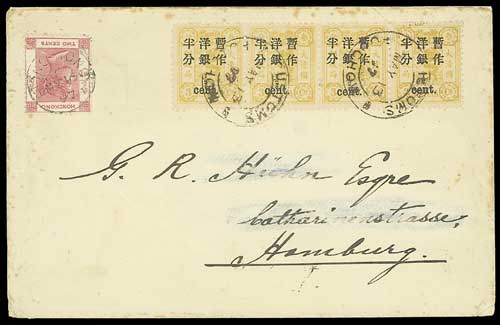 暫作洋銀半分
cent.
暫作洋銀半分
cent.
暫作洋銀半分
cent.
暫作洋銀半分
cent.
HONGKONG
TWO CENTS
CUSTOMS
MAY 13
G. R. Hühn Esqre
Catharinenstrasse,
Hamburg.